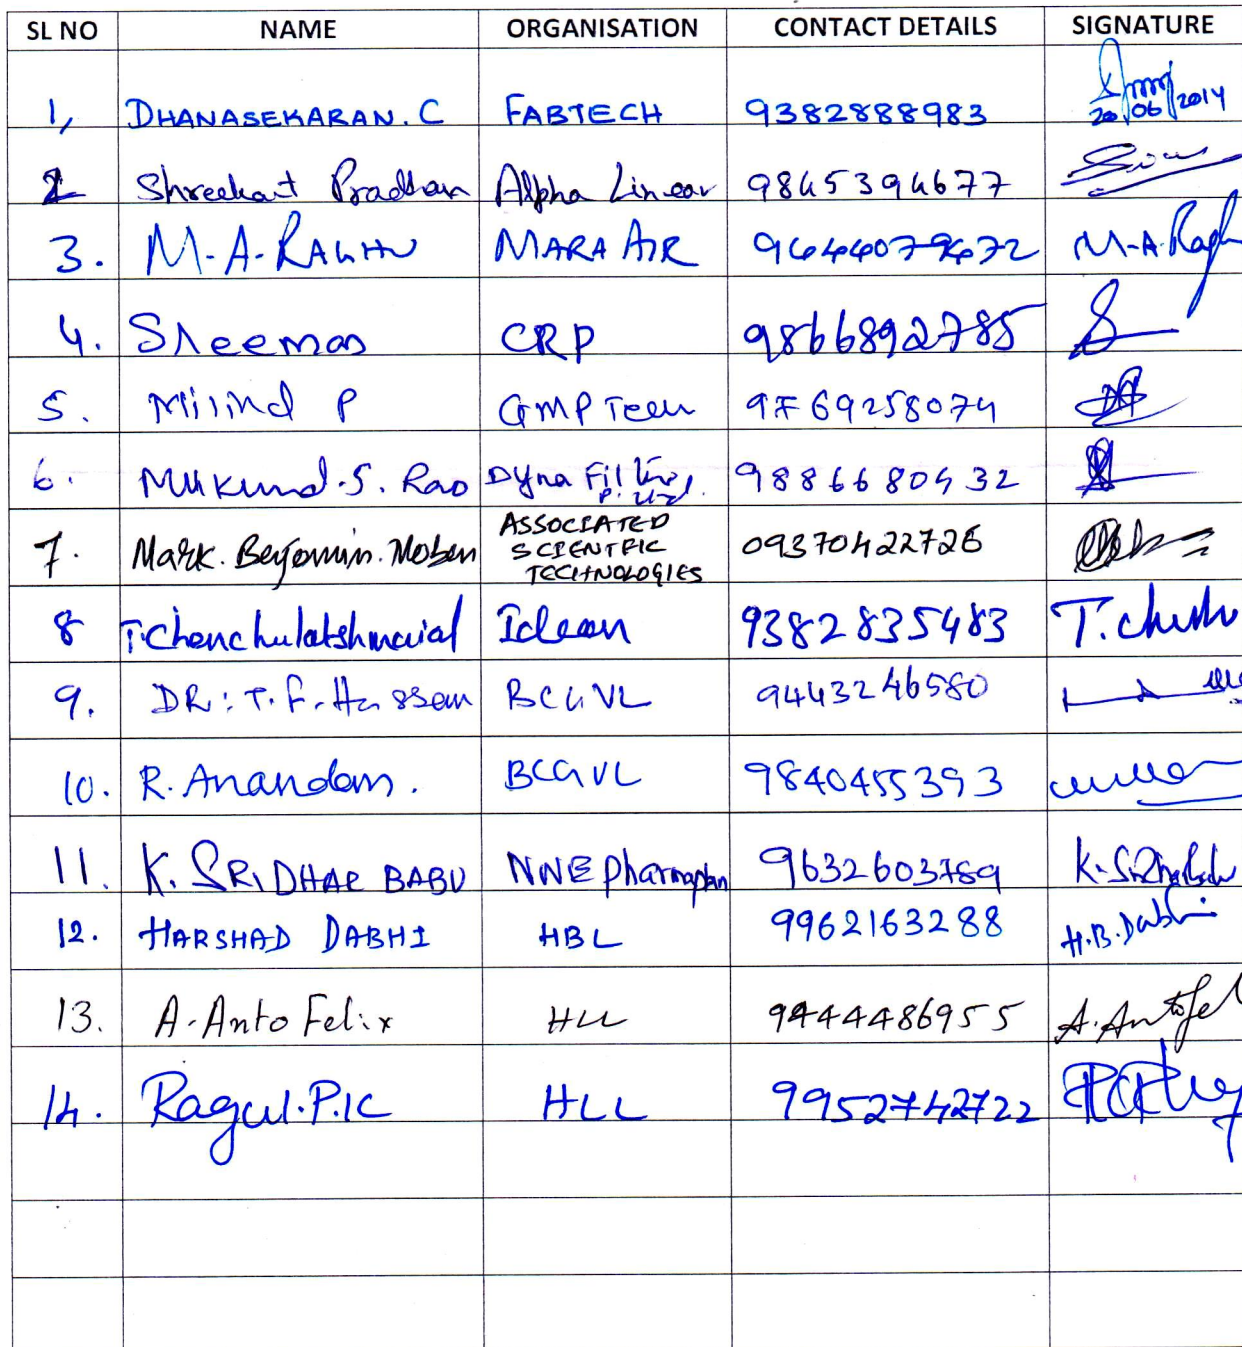 SL NO NAME ORGANISATION CONTACT DETAILS SIGNATURE
1, DHANASEKARAN. C FABTECH 9382888983
20/06/2014
2 Shreekant Pradhan Alpha Linear 9845394677
3. M.A. RAGHU MARA AIR M.A. Ragh
4. Sreeman CRP 9866892785
5. Milind P GMP Tech 9769258074
6. Mukund.S. Rao Dyna Filters 9886680432
P. Ltd.
7. Mark. Benjamin. Moben ASSOCIATED 09370422726
SCIENTIFIC
TECHNOLOGIES
8 T.Chenchulakshmaiah Iclean 9382835483 T.
9. DR: T. F. Hussain BCGVL 9443246580
10. R. Anandan. BCGVL 9840455393
11. K. SRIDHAR BABU NNE Pharmaplan 9632603789
12. HARSHAD DABHI HBL 9962163288 H.B.Dabhi
13. A. Anto Felix HLL 9444486955 A. Antofel
14. Ragul.P.K HLL 9952742722